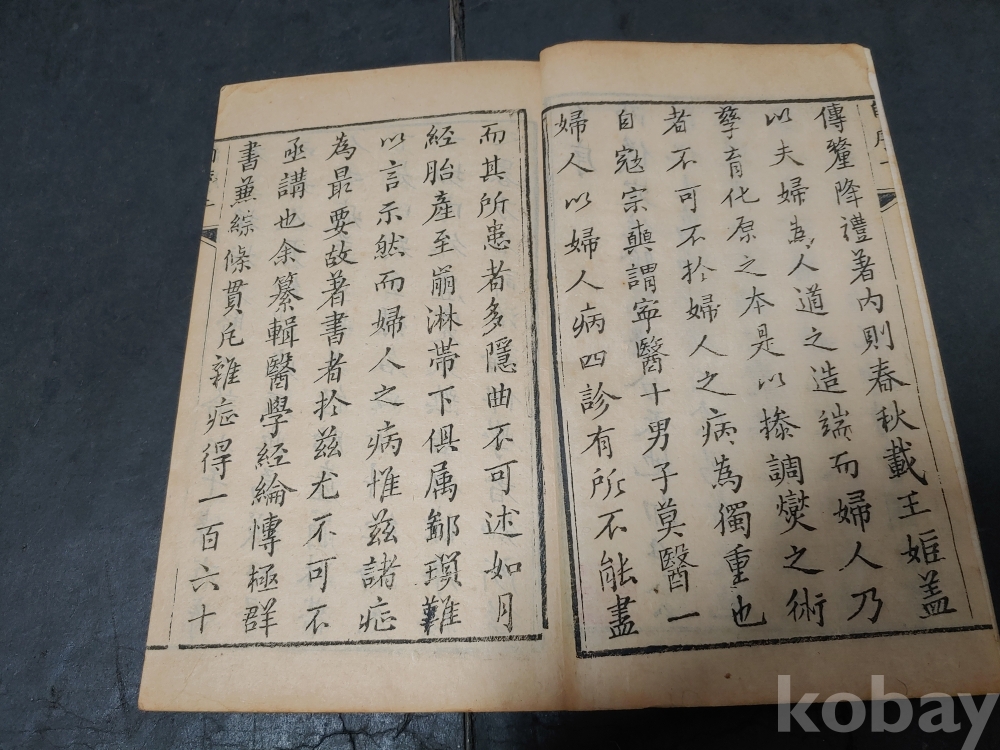 傳釐降禮著內則春秋載王姬盖
以夫婦為人道之造端而婦人乃
孳育化原之本是以掺調爕之術
者不可不扵婦人之病為獨重也
自寇宗奭謂寧醫十男子莫醫一
婦人以婦人病四診有所不能盡
而其所患者多隱曲不可述如月
經胎產至崩淋帶下俱属鄙瑣難
以言示然而婦人之病惟兹諸症
為最要故著書者扵兹尤不可不
亟講也余纂輯醫學經綸慱極群
書蒹綜條貫凡雜症得一百六十
kobay